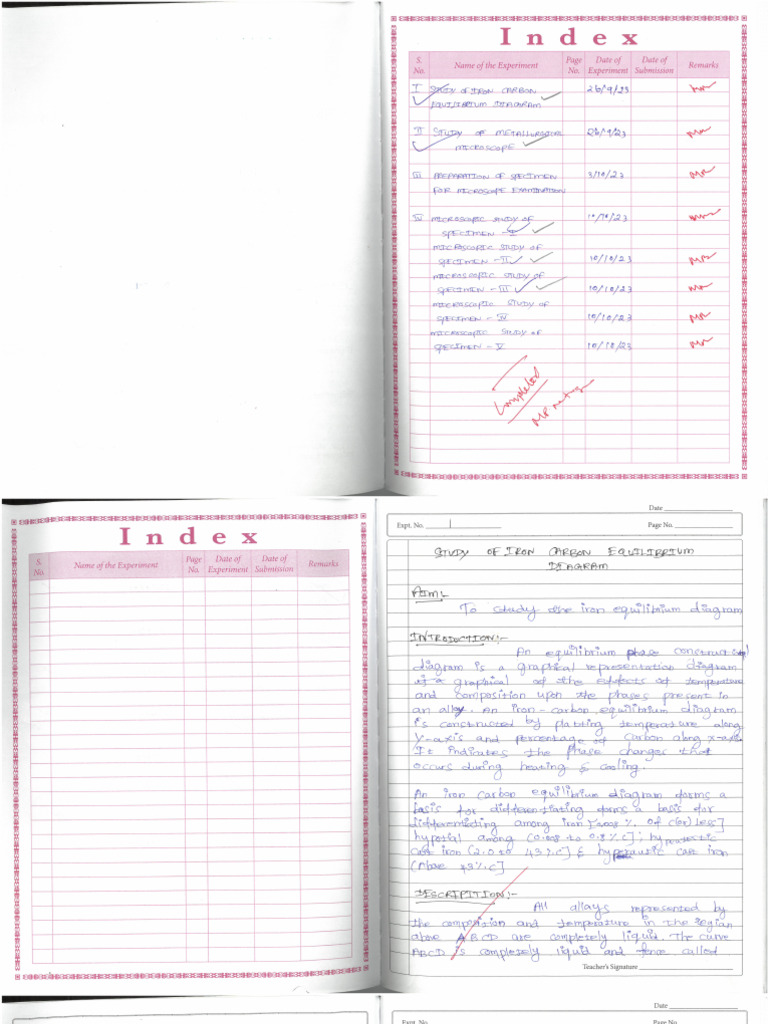 Index
S. No. Name of the Experiment Page No. Date of Experiment Date of Submission Remarks
I STUDY OF IRON CARBON 26/9/23
EQUILIBRIUM DIAGRAM
II STUDY OF METALLURGICAL 26/9/23
MICROSCOPE
III PREPARATION OF SPECIMEN 3/10/23
FOR MICROSCOPE EXAMINATION
IV MICROSCOPIC STUDY OF 10/10/23
SPECIMEN - I
MICROSCOPIC STUDY OF
SPECIMEN - II 10/10/23
MICROSCOPIC STUDY OF
SPECIMEN - III 10/10/23
MICROSCOPIC STUDY OF
SPECIMEN - IV 10/10/23
MICROSCOPIC STUDY OF
SPECIMEN - V 10/10/23
Completed
Index
S. No. Name of the Experiment Page No. Date of Experiment Date of Submission Remarks
Date
Expt. No. Page No.
STUDY OF IRON CARBON EQUILIBRIUM
DIAGRAM
AIM:
To study the iron equilibrium diagram
INTRODUCTION:-
An equilibrium phase
diagram is a graphical representation diagram
graphical of the effects of temperature
and composition upon the phases present in
an alloy. An iron-carbon equilibrium diagram
is constructed by plotting temperature along
Y-axis and percentage of Carbon along x-axis.
It indicates the phase changes that
occurs during heating & cooling.
An iron carbon equilibrium diagram forms a
basis for differentiating forms a basis for
among iron [0.008 %. of C(or) Less]
among (0.008 to 0.8 % C];
cast iron (2.0 to 4.3 % C] & cast iron
(Above 4.3 % C]
DISCRIPITION:-
All alloys represented by
the and temperature in the region
above ABCD are completely liquid. The curve
ABCD is completely liquid and called
Teacher's Signature
Date
Expt. No. Page No.